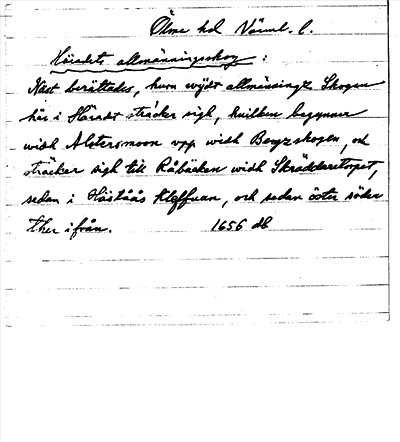 Ölme hd Värml. l.
Häradets allmänningsskog :
Näst berättades, hum wijdt allmännings Skogen
här i Häradt sträcker sigh, huilken begynner
widh Alstersmoon vpp widh Bergzskogen, och
sträcker sigh till Råbäcken widh Skräddaretorpet,
sedan i Höståås Kleffuan, och sedan öster söder
ther ifrån. 1656 db